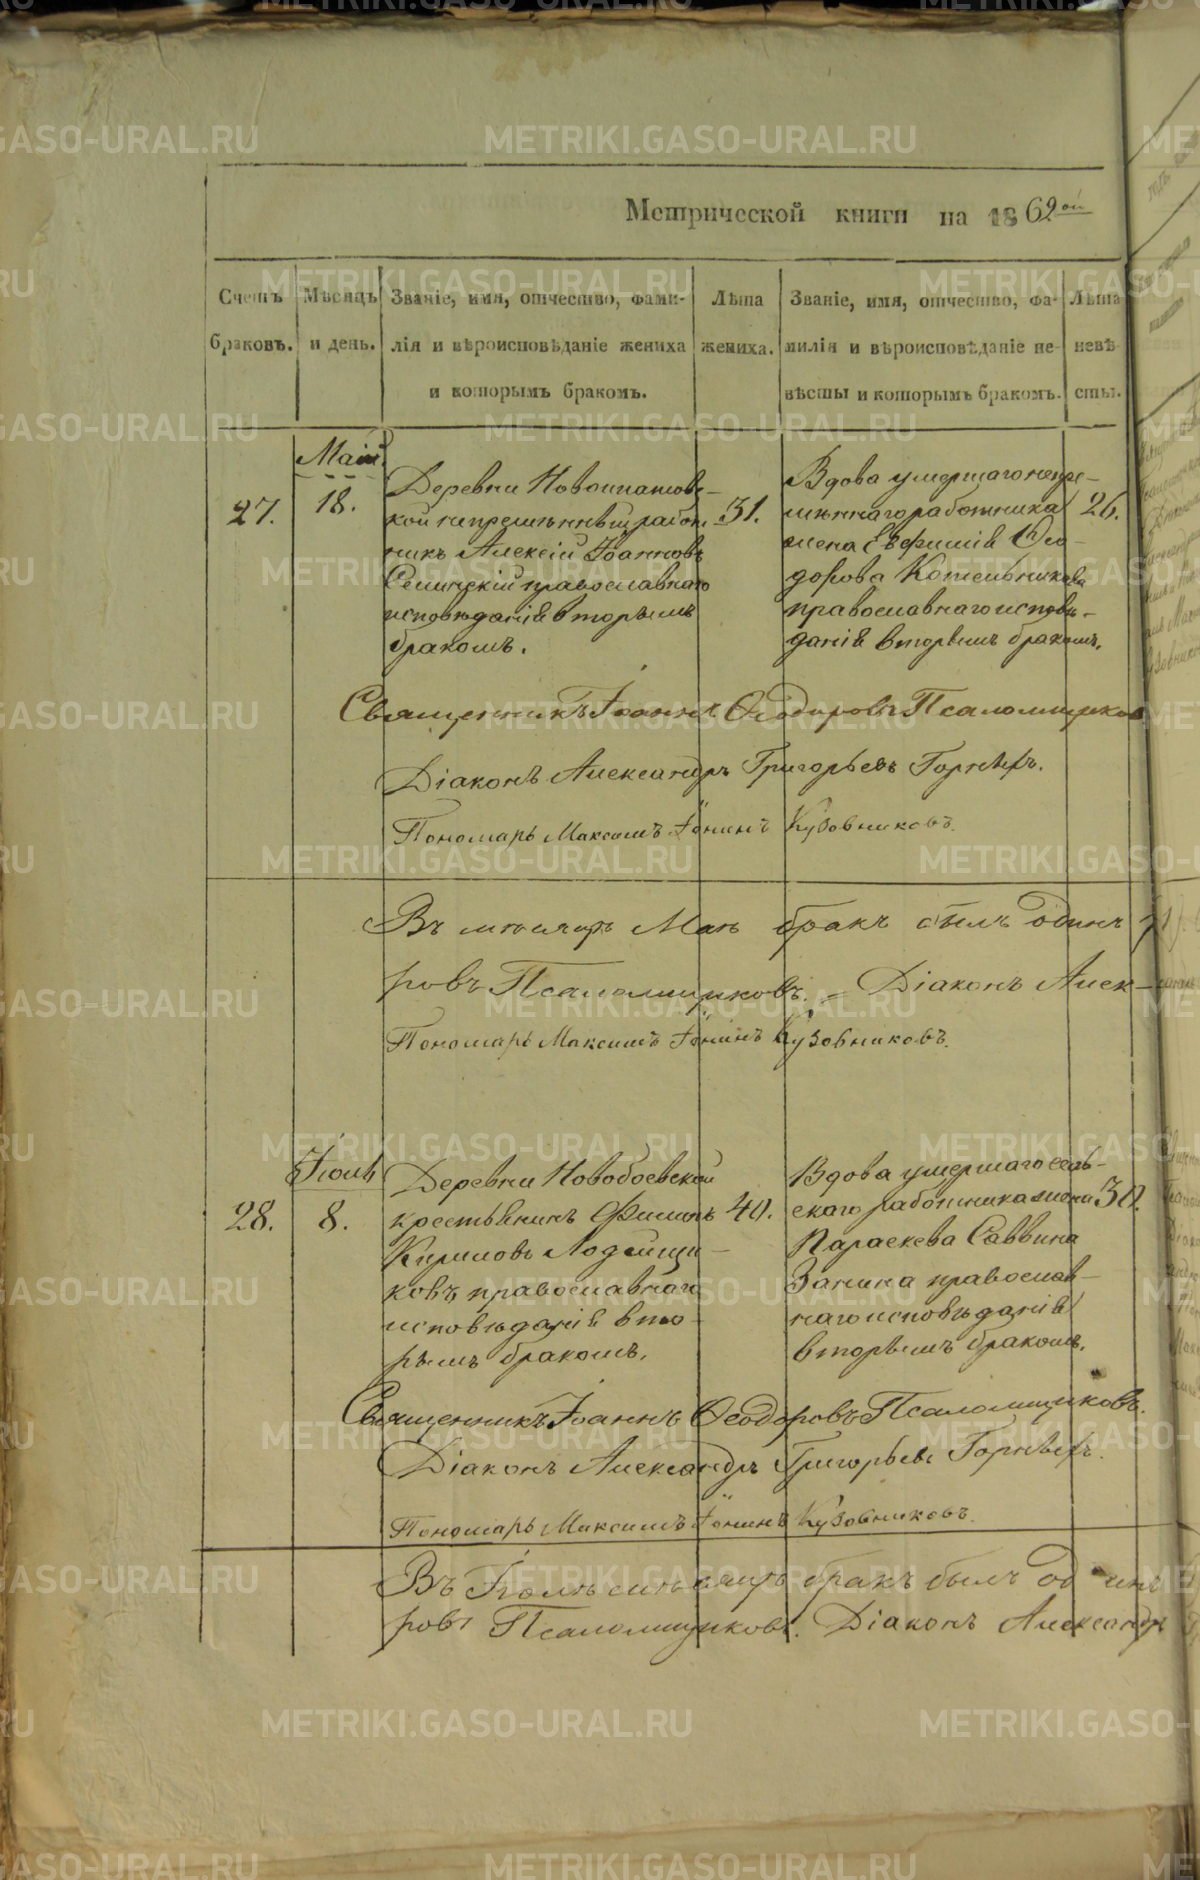 Метрической книги на 1862ой
Счетъ браковъ.
Мѣсяцъ и день.
Званіе, имя, отчество, фами-
лія и вѣроисповѣданіе жениха
и которымъ бракомъ.
Лѣта
жениха.
Званіе, имя, отчество, фа-
милія и вѣроисповѣданіе не-
вѣсты и которымъ бракомъ.
Лѣта
невѣ-
сты.
27.
Маій
18.
Деревни Новоипатовс-
кой непремѣнный работ-
никъ Алексій Іоанновъ
православнаго
исповѣданія вторымъ
бракомъ.
31.
Вдова умершаго непре-
мѣннаго работника
жена Евфимія Ѳео-
дорова Котельникова
православнаго исповѣ-
данія вторымъ бракомъ.
26.
Священникъ Іоаннъ Ѳеодоровъ Псаломщиковъ
Діаконъ Александръ Григорьевъ Горныхъ.
Пономарь Максимъ Іонинъ Кузовниковъ.
Въ мѣсяцѣ Маѣ бракъ былъ одинъ
ровъ Псаломщиковъ. Діаконъ Алек-
Пономарь Максимъ Іонинъ Кузовниковъ.
28.
Іюль
8.
Деревни Новобоевской
крестьянинъ Филипъ
Кириловъ Лодейщи-
ковъ православнаго
исповѣданія вто-
рымъ бракомъ.
40.
Вдова умершаго сель-
скаго работника жена
Параскева Саввина
Запина православ-
наго исповѣданія
вторымъ бракомъ.
30.
Священникъ Іоаннъ Ѳеодоровъ Псаломщиковъ.
Діаконъ Александръ Григорьевъ Горныхъ.
Пономарь Максимъ Іонинъ Кузовниковъ.
Въ Іюлѣ мѣсяцѣ бракъ былъ одинъ
ровъ Псаломщиковъ. Діаконъ Александръ
METRIKI.GASO-URAL.RU